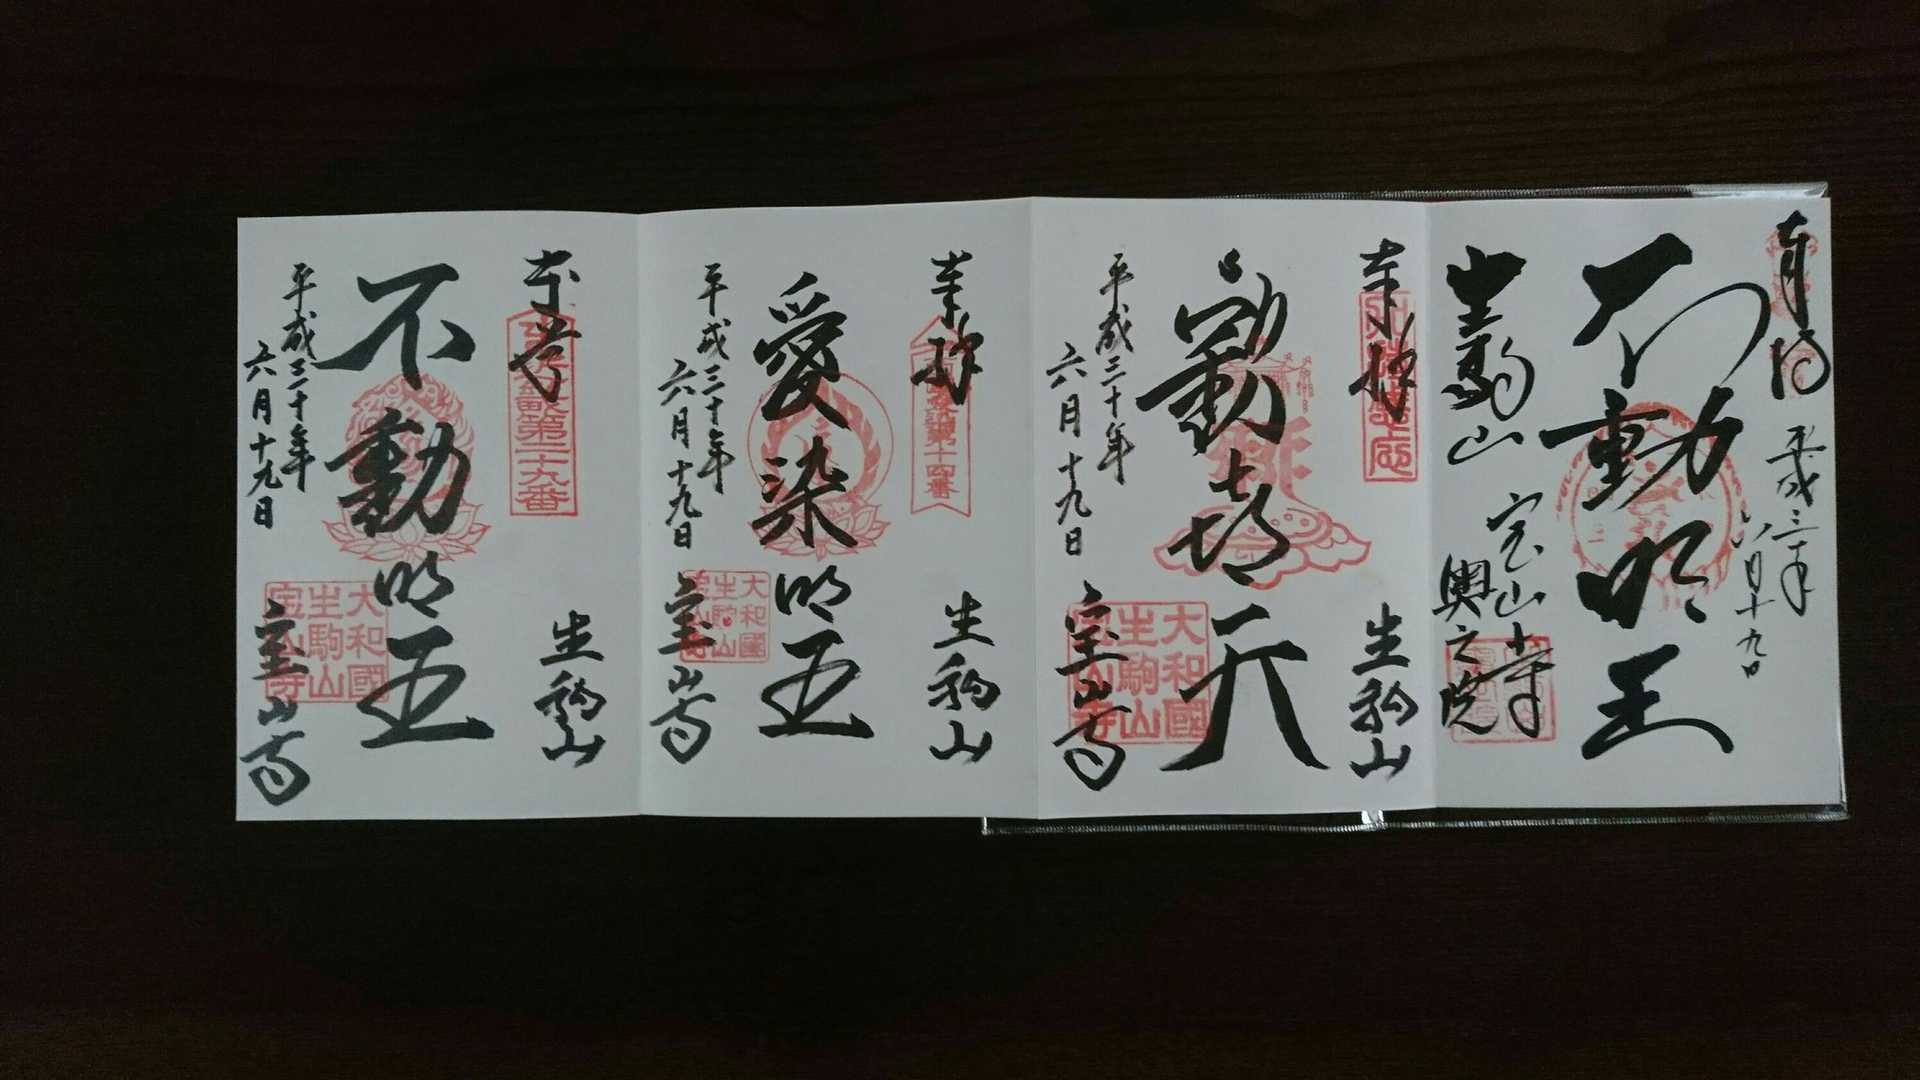 奉拝
平成三十年
六月十九日
不動明王
生駒山
宝山寺
奥之院
奉拝
歓喜天
平成三十年
六月十九日
生駒山
宝山寺
大和國
生駒山
宝山寺
奉拝
第十四番
愛染明王
平成三十年
六月十九日
生駒山
宝山寺
大和國
生駒山
宝山寺
奉拝
第二十九番
不動明王
平成三十年
六月十九日
生駒山
宝山寺
大和國
生駒山
宝山寺